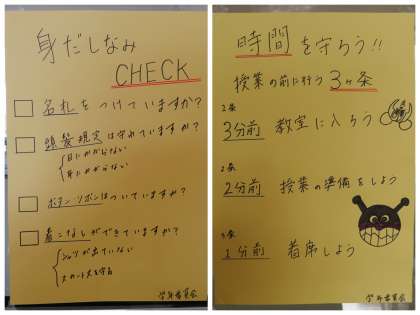 身だしなみ
CHECK
□ 名札をつけていますか?
□ 頭髪規定は守れていますか?
目にかからない
耳にかからない
□ ボタン、リボンはついていますか?
□ 着こなしができていますか?
シャツが出ていない
スカート丈を守る
学年委員会
時間を守ろう!!
授業の前に行う3ヶ条
1条
3分前 教室に入ろう
2条
2分前 授業の準備をしよう
3条
1分前 着席しよう
学年委員会